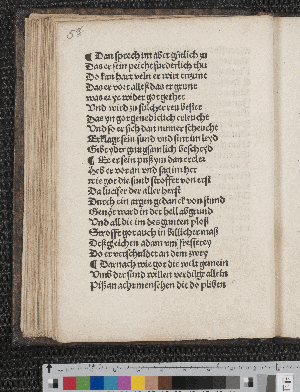 59
¶ Dan sprech im aber gütlich zu
Das er sein peicht fürderlich thu
Do kan hart vein er wirt
Das er vor alles das er
was er ye wider got gethet
Vnd wird zu solcher reu bestet
Das yn got genediclich erleucht
Vnd so er sich dan nimer scheucht
Erklagt sein sund vnd sint im leyd
Gib yder gnugsamlich bescheyd
¶ Ee er sein puß vm dan erclet
Heb er voran vnd sag im her
wie got die sund stroffet von erst
Da lucifer der aller herst
Durch ein argen gedanck von stund
Genot ward in der hell abgrund
Vnd all die im des gunten ploß
Strofft got auch in billicher maß
Deßgleichen adam vm fresserey
Do er verschuldet an dem zwey
¶ Darnach wie got die welt gemein
Vmb der sund willen verdilgt allein
Piß an acht menschen die do pliben